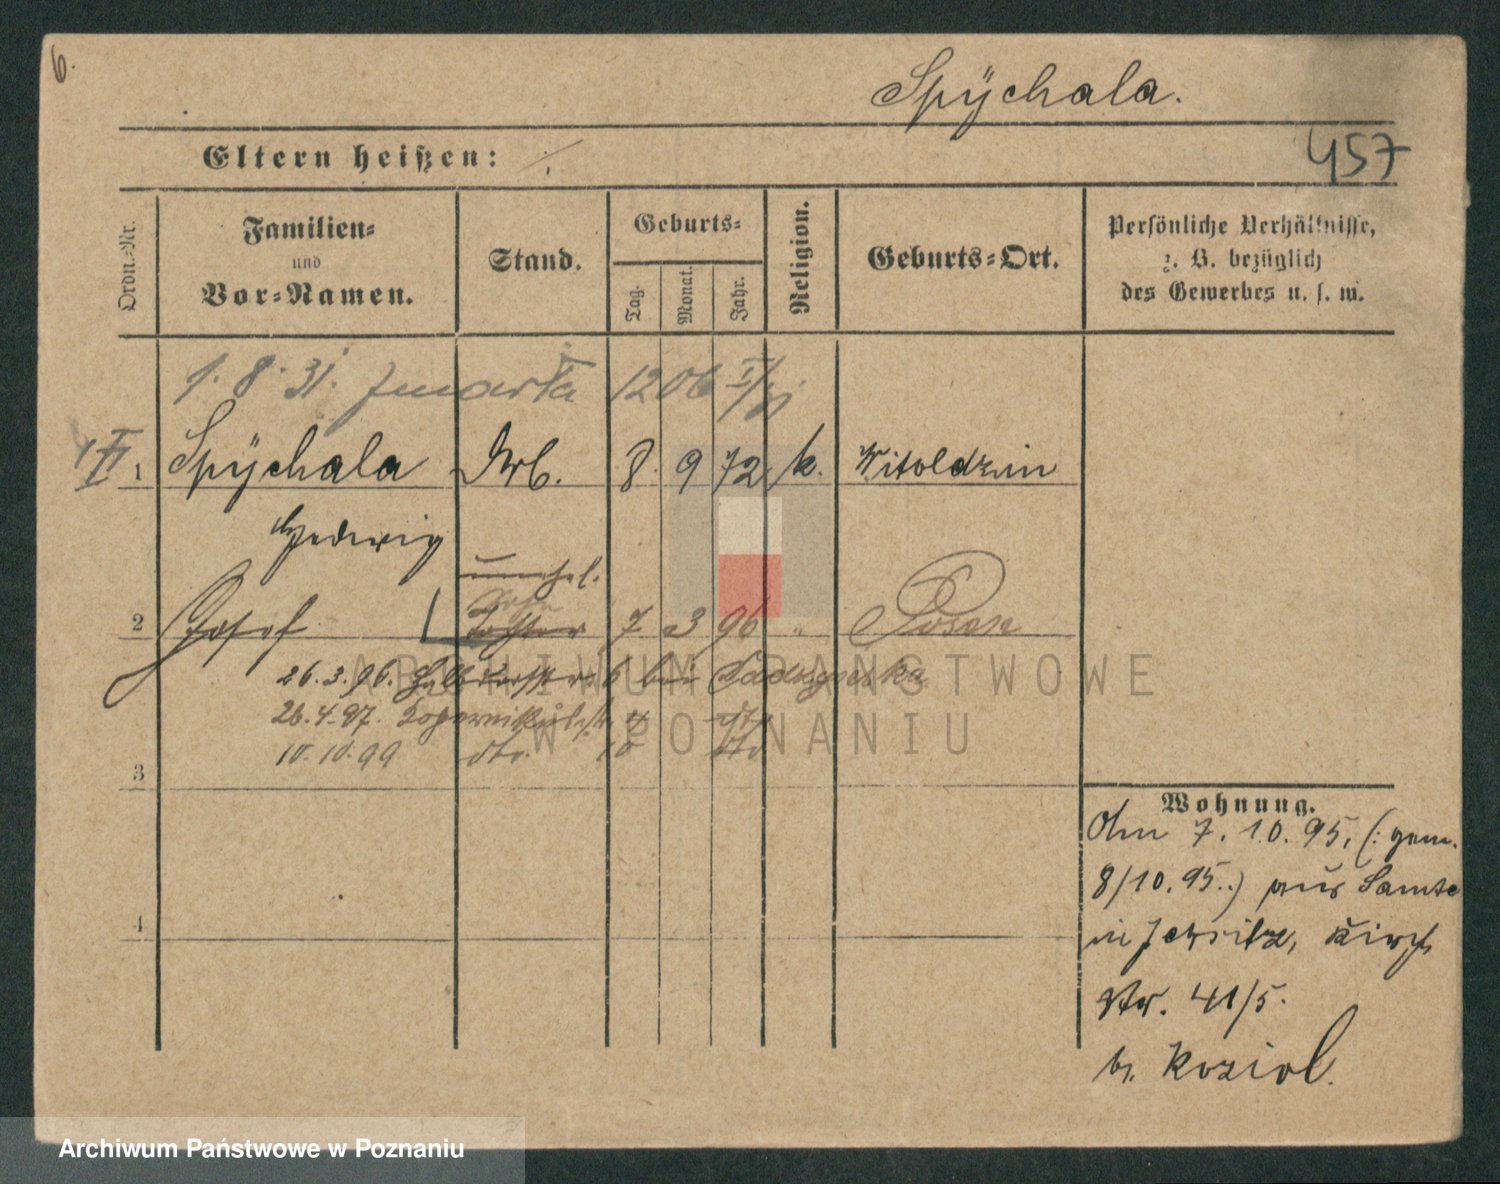 6.
Spÿchala.
Eltern heißen: /.
457
Ordn.-Nr.
Familien-
und
Vor-Namen.
Stand.
Geburts-
Tag.
Monat.
Jahr.
Religion.
Geburts-Ort.
Persönliche Verhältnisse,
z. B. bezüglich
des Gewerbes u. s. w.
1. 8. 31. 1206
1 Spÿchala Arb. 8. 9 72 k. Witoldzin
Hedwig
unehel.
Sohn
2 Josef Tochter 7 3 96 " Posen
26.3.96. 6 bei
26.4.97. 4
10.10.99 dto. 10 dto
3
4
Wohnung.
Am 7. 10. 95. (: gem.
8/10. 95.:) aus Samter
in Jersitz, Kirch
Str. 41/5.
b. Koziol.
ARCHIWUM PAŃSTWOWE
W POZNANIU
Archiwum Państwowe w Poznaniu